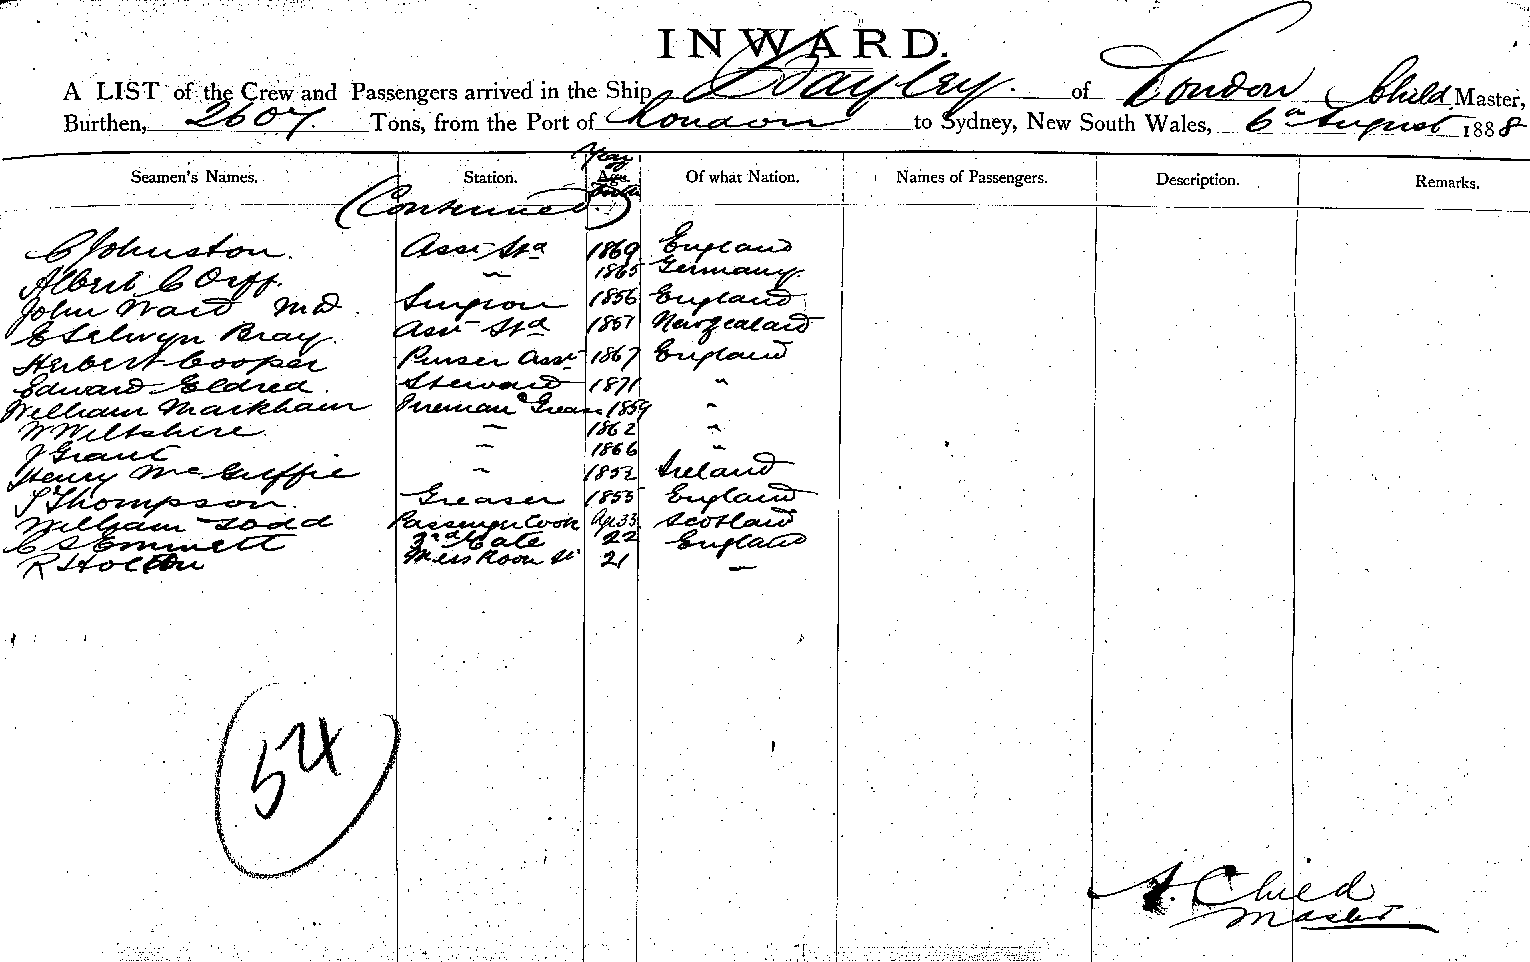 INWARD.
A LIST of the Crew and Passengers arrived in the Ship Bayley. of London Child Master,
Burthen, 2607. Tons, from the Port of London to Sydney, New South Wales, 6th August 1888
Year
Seamen's Names. Station. Birth Of what Nation. Names of Passengers. Description. Remarks.
(Continued.)
C Johnston. Asst Std 1869 England
Albert C Orff. " 1865 Germany.
John Ward MD. Surgeon 1856 England
E Selwyn Bray. Asst Std 1857 New Zealand
Herbert Cooper Purser Asst 1867 England
Edward Eldred. Steward 1871 "
William Markham Fireman & Greas 1859 "
W Wiltshire. " 1862 "
J Grant " 1866 "
Henry McGuffie " 1852 Ireland
S Thompson. Greaser 1855 England
William Todd Passenger Cook Age 33 Scotland
C S Emmett 3rd Mate 22 England
R Holton Mess Room St 21 "
54
A. Child
Master